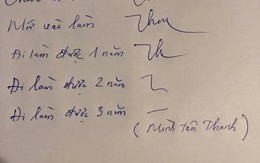 Mới vào làm Thanh
Đi làm được 1 năm Th
Đi làm được 2 năm
Đi làm được 3 năm
(Mình tên Thanh)